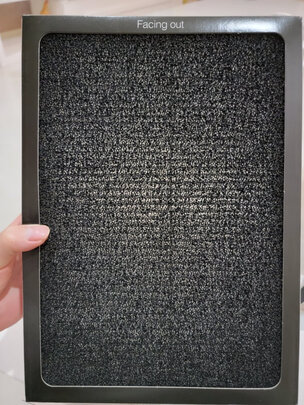 Facing out